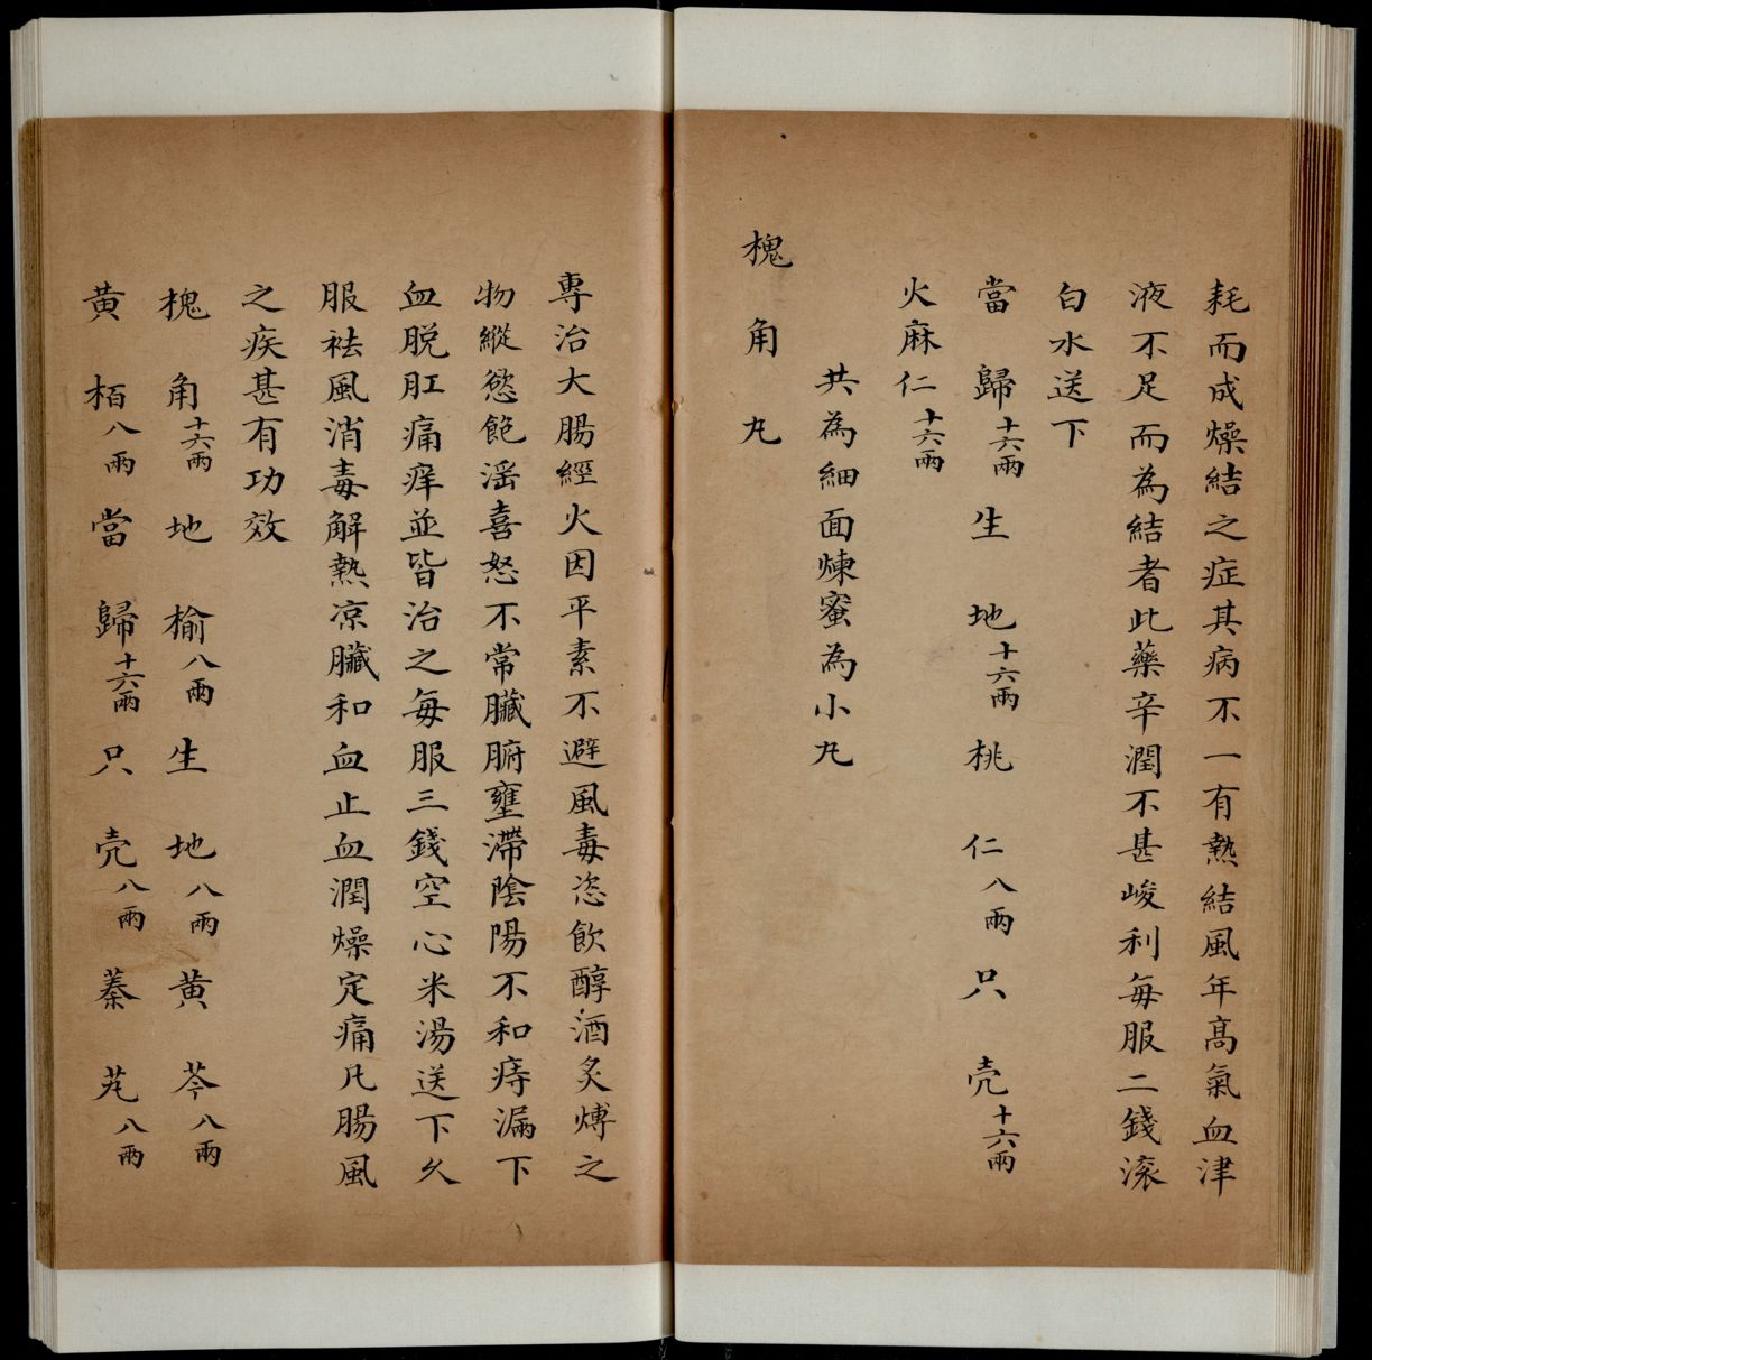 耗而成燥結之症其病不一有熱結風年高氣血津
液不足而為結者此藥辛潤不甚峻利每服二錢滚
白水送下
當歸十六兩生地十六兩桃仁八兩只壳十六兩
火麻仁十六兩
共為細面煉蜜為小丸
槐角丸
專治大腸經火因平素不避風毒恣飲醇酒炙煿之
物縱慾飽滛喜怒不常臟腑壅滯陰陽不和痔漏下
血脱肛痛痒並皆治之每服三錢空心米湯送下久
服祛風消毒解熱凉臟和血止血潤燥定痛凡腸風
之疾甚有功效
槐角十六兩地榆八兩生地八兩黄芩八兩
黄栢八兩當歸十六兩只壳八兩蓁艽八兩